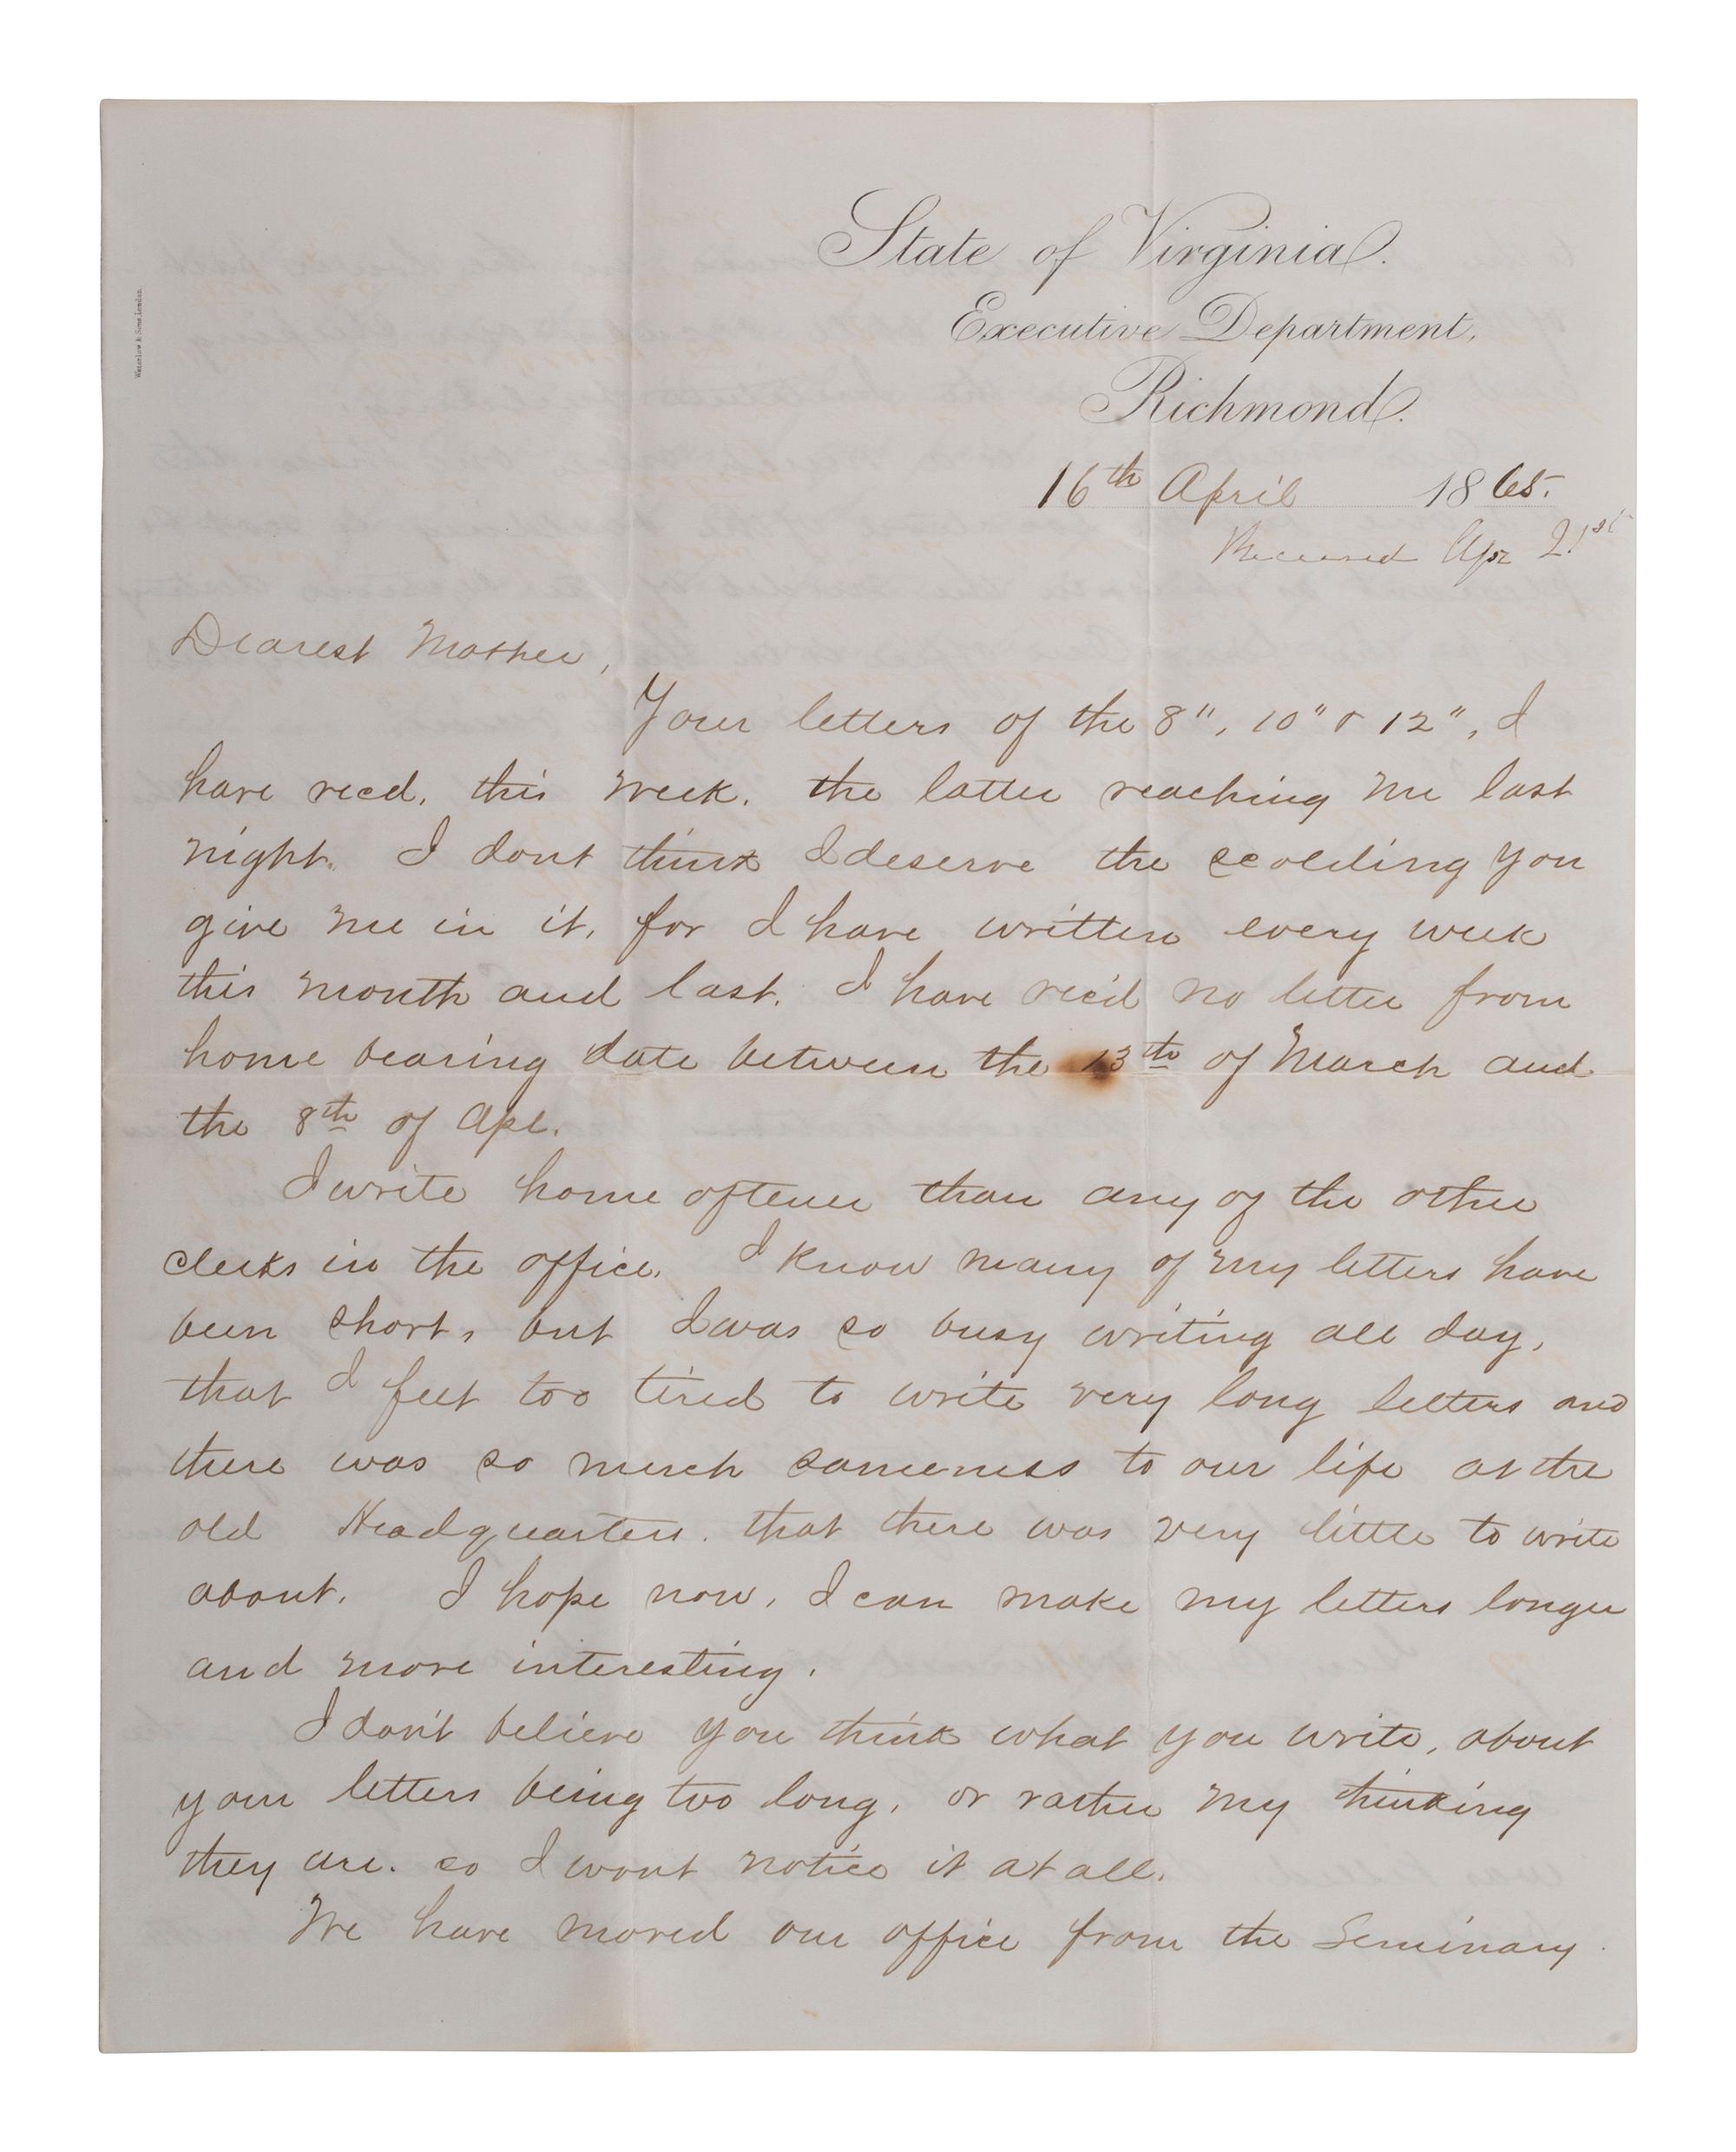 State of Virginia.
Executive Department,
Richmond.
16th April 1865.
Received Apr 21st
Waterlow & Sons, London.
Dearest Mother,
Your letters of the 8", 10" & 12", I
have recd. this week. the latter reaching me last
night. I dont think I deserve the scolding you
give me in it, for I have written every week
this month and last. I have rec'd no letter from
home bearing date between the 13th of March and
the 8th of Apl.
I write home oftener than any of the other
clerks in the office. I know many of my letters have
been short, but I was so busy writing all day,
that I felt too tired to write very long letters and
there was so much sameness to our life at the
old Headquarters. that there was very little to write
about. I hope now, I can make my letters longer
and more interesting.
I don't believe you think what you write, about
your letters being too long, or rather my thinking
they are. so I wont notice it at all.
We have moved our office from the Seminary